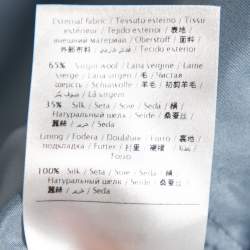 External fabric / Tessuto esterno / Tissu
extérieur / Tecido exterior / 表地 /
внешний материал / Oberstoff / 面料 /
外部布料 / Tejido exterior
65% Virgin wool / Lana vergine / Laine
vierge / Lã virgem / 毛 / Чистая
шерсть / Schurwolle / 羊毛 / 初剪羊毛
/ Lã virgem
35% Silk / Seta / Soie / Seda / 絹 /
Натуральный шелк / Seide / 桑蚕丝 /
蠶絲 / حرير / Seda
Lining / Fodera / Doublure / Forro / 裏地 /
подкладка / Futter / 衬里 /
Forro
100% Silk / Seta / Soie / Seda / 絹 /
Натуральный шелк / Seide / 桑蚕丝 /
蠶絲 / حرير / Seda